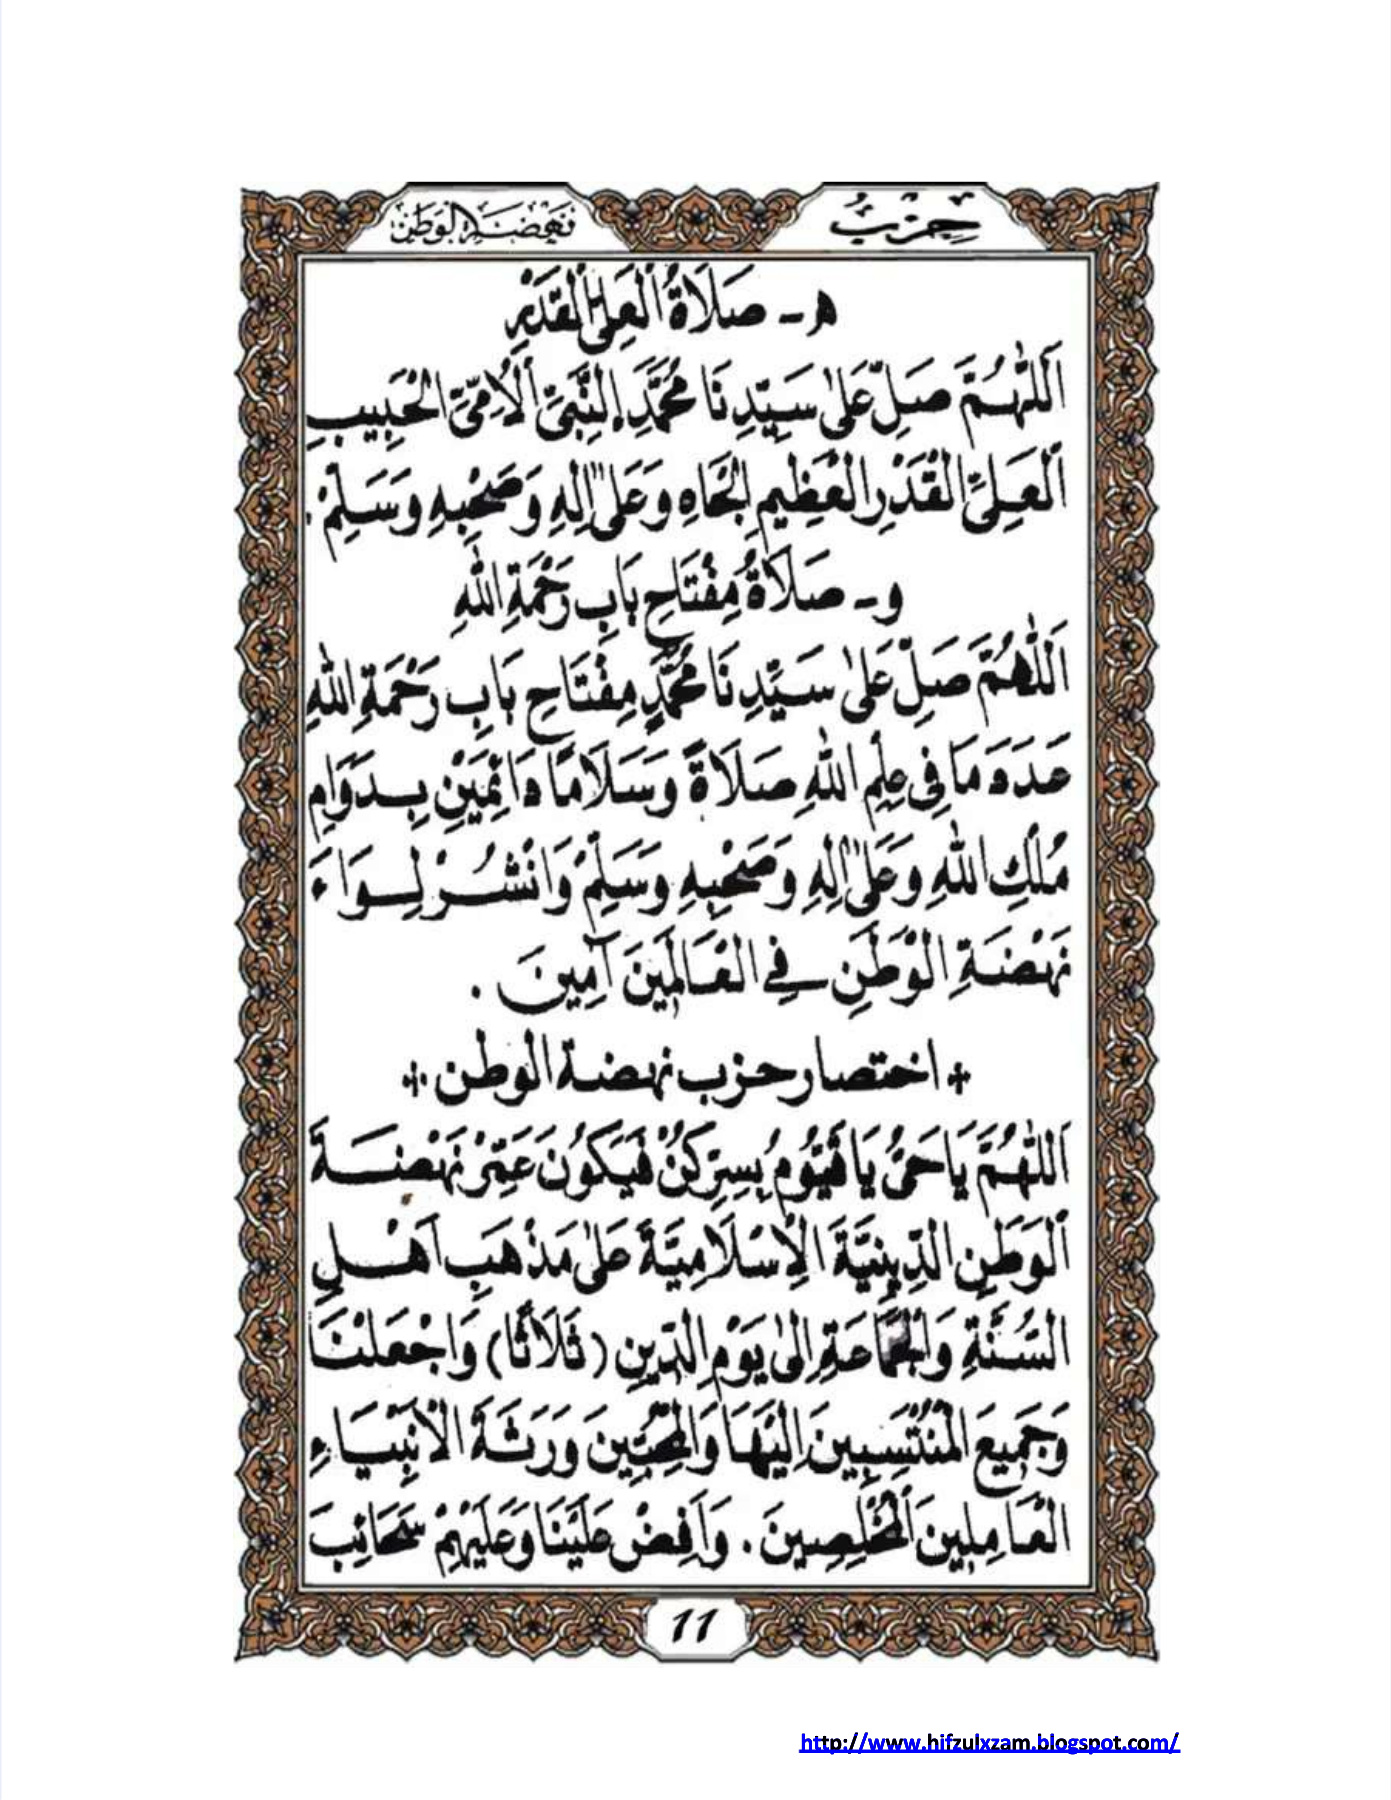 حِزْبُ
نَهْضَةِ الْوَطَنِ
ه - صَلَاةُ الْعَلِيِّ الْقَدْرِ
اَللّٰهُمَّ صَلِّ عَلَى سَيِّدِنَا مُحَمَّدٍ النَّبِيِّ الْأُمِّيِّ الْحَبِيبِ
اَلْعَلِيِّ الْقَدْرِ الْعَظِيمِ الْجَاهِ وَعَلَى اٰلِهِ وَصَحْبِهِ وَسَلِّمْ .
و - صَلَاةُ مِفْتَاحِ بَابِ رَحْمَةِ اللهِ
اَللّٰهُمَّ صَلِّ عَلَى سَيِّدِنَا مُحَمَّدٍ مِفْتَاحِ بَابِ رَحْمَةِ اللهِ
عَدَدَ مَا فِي عِلْمِ اللهِ صَلَاةً وَسَلَامًا دَائِمَيْنِ بِدَوَامِ
مُلْكِ اللهِ وَعَلَى اٰلِهِ وَصَحْبِهِ وَسَلِّمْ وَانْشُرْ لِوَاءَ
نَهْضَةِ الْوَطَنِ فِي الْعَالَمِينَ آمِينَ .
+ اختصار حزب نهضة الوطن +
اَللّٰهُمَّ يَا حَيُّ يَا قَيُّومُ بِسِرِّ كُنْ فَيَكُونُ عَمِّرْ نَهْضَةَ
اَلْوَطَنِ الدِّينِيَّةَ الْإِسْلَامِيَّةَ عَلَى مَذْهَبِ أَهْلِ
السُّنَّةِ وَالْجَمَاعَةِ إِلَى يَوْمِ الدِّينِ (ثَلَاثًا) وَاجْعَلْنَا
وَجَمِيعَ الْمُنْتَسِبِينَ إِلَيْهَا وَالْمُحِبِّينَ وَرَثَةَ الْأَنْبِيَاءِ
الْعَامِلِينَ الْمُخْلِصِينَ . وَأَفِضْ عَلَيْنَا وَعَلَيْهِمْ سَحَائِبَ
11
http://www.hifzulxzam.blogspot.com/